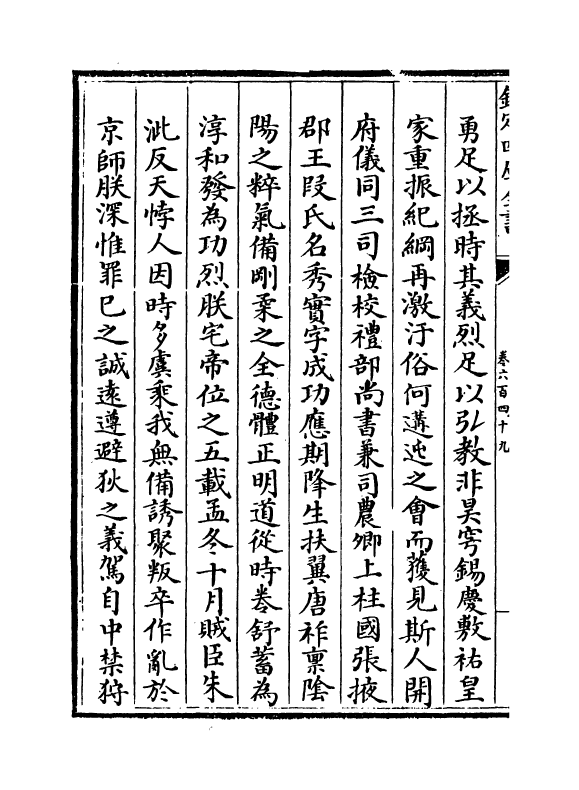 欽定四庫全書
卷六百四十九
勇足以拯時其義烈足以弘教非昊穹錫慶敷祐皇
家重振紀綱再激汙俗何遘迍之會而獲見斯人開
府儀同三司檢校禮部尚書兼司農卿上柱國張掖
郡王段氏名秀實字成功應期降生扶翼唐祚禀陰
陽之粹氣備剛柔之全德體正明道從時卷舒蓄為
淳和發為功烈朕宅帝位之五載孟冬十月賊臣朱
泚反天悖人因時多虞乘我無備誘聚叛卒作亂於
京師朕深惟罪已之誠遠遵避狄之義駕自中禁狩